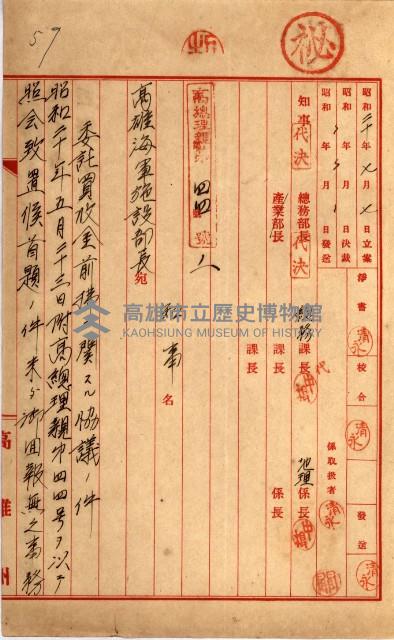 57
秘
昭和二十年七月七日立案
昭和 年 月 日決裁
昭和 年 月 日發送
淨書
清永
校合
清永
發送
清永
係取扱者
清永
知事
代決
總務部長
代決
產業部長
總務課長
代
課長
課長
地理係長
係長
高總理親
四四號ノ
高雄海軍施設部長宛
知事名
委託買收金前揭ニ關スル協議ノ件
昭和二十年五月二十三日附高總理親第四四号ヲ以テ
照会致置候首題ノ件未ダ御回報無之事務
高雄州
高雄市立歷史博物館
KAOHSIUNG MUSEUM OF HISTORY